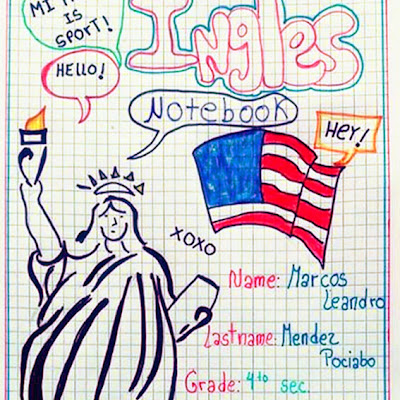 MI
IS
SPORT!
HELLO!
Ingles
Notebook
Hey!
XOXO
Name: Marcos
Leandro
Lastname: Mendez
Pociabo
Grade: 4to sec.